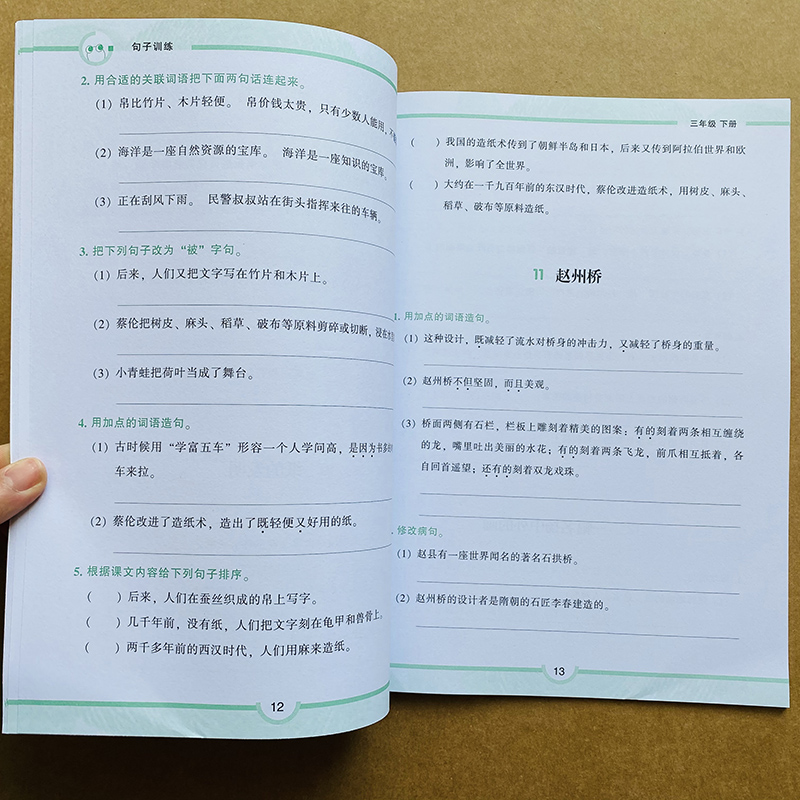 句子训练
2. 用合适的关联词语把下面两句话连起来。
(1) 帛比竹片、木片轻便。 帛价钱太贵，只有少数人能用，
(2) 海洋是一座自然资源的宝库。 海洋是一座知识的宝库。
(3) 正在刮风下雨。 民警叔叔站在街头指挥来往的车辆。
3. 把下列句子改为“被”字句。
(1) 后来，人们又把文字写在竹片和木片上。
(2) 蔡伦把树皮、麻头、稻草、破布等原料剪碎或切断，浸在
(3) 小青蛙把荷叶当成了舞台。
4. 用加点的词语造句。
(1) 古时候用“学富五车”形容一个人学问高，是因为书多
车来拉。
(2) 蔡伦改进了造纸术，造出了既轻便又好用的纸。
5. 根据课文内容给下列句子排序。
( ) 后来，人们在蚕丝织成的帛上写字。
( ) 几千年前，没有纸，人们把文字刻在龟甲和兽骨上。
( ) 两千多年前的西汉时代，人们用麻来造纸。
12
三年级 下册
( ) 我国的造纸术传到了朝鲜半岛和日本，后来又传到阿拉伯世界和欧
洲，影响了全世界。
( ) 大约在一千九百年前的东汉时代，蔡伦改进造纸术，用树皮、麻头、
稻草、破布等原料造纸。
11 赵州桥
1. 用加点的词语造句。
(1) 这种设计，既减轻了流水对桥身的冲击力，又减轻了桥身的重量。
(2) 赵州桥不但坚固，而且美观。
(3) 桥面两侧有石栏，栏板上雕刻着精美的图案：有的刻着两条相互缠绕
的龙，嘴里吐出美丽的水花；有的刻着两条飞龙，前爪相互抵着，各
自回首遥望；还有的刻着双龙戏珠。
. 修改病句。
(1) 赵县有一座世界闻名的著名石拱桥。
(2) 赵州桥的设计者是隋朝的石匠李春建造的。
13